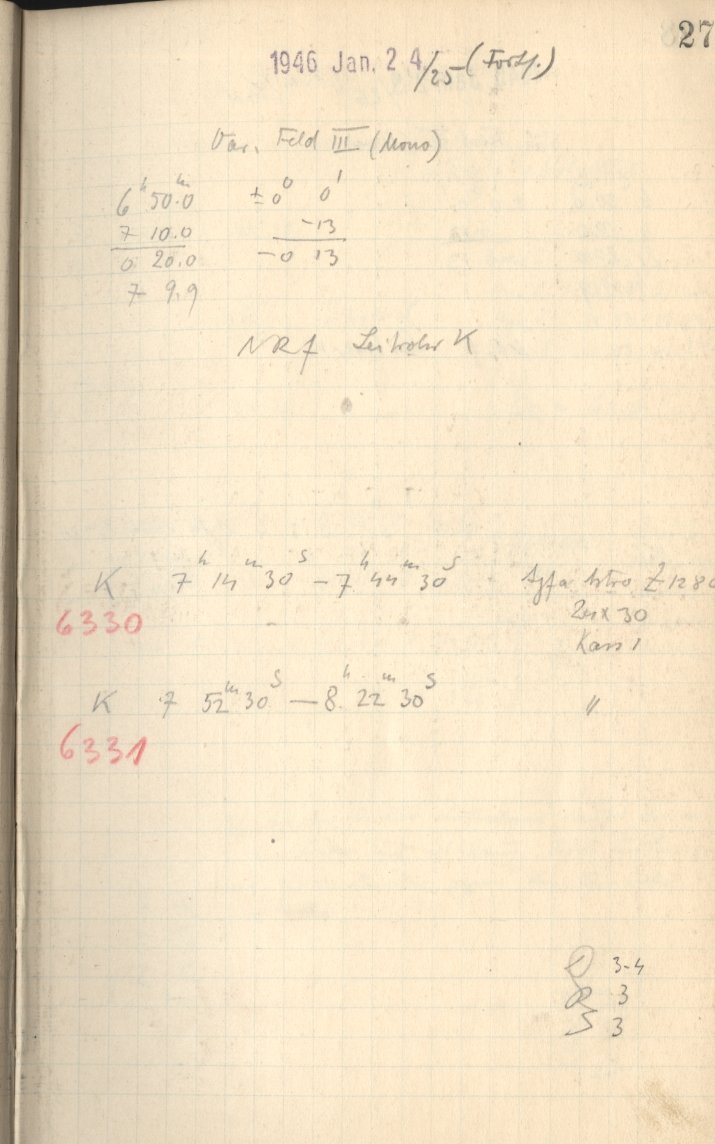 27
1946 Jan. 24/25 (Forts.)
Var. Feld III (Mono)
6ʰ 50.0ᵐ ± 0° 0'
7 10.0 -13
0 20.0 -0 13
7 9.9
NRf Leitrohr K
K 7ʰ 14ᵐ 30ˢ – 7ʰ 44ᵐ 30ˢ Agfa Astro Z 1280
6330
24 x 30
Kass 1
K 7 52ᵐ 30ˢ – 8ʰ 22ᵐ 30ˢ "
6331
3-4
R 3
S 3